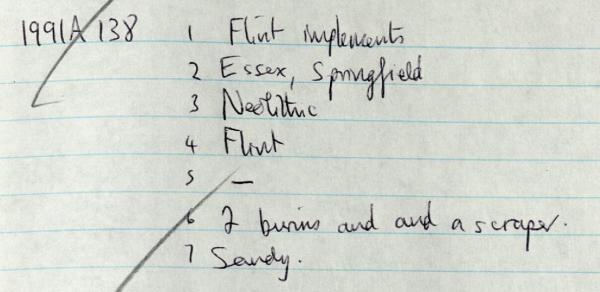 1991A 138 1 Flint implements
2 Essex, Springfield
3 Neolithic
4 Flint
5 —
6 2 burins and and a scraper.
7 Sandy.